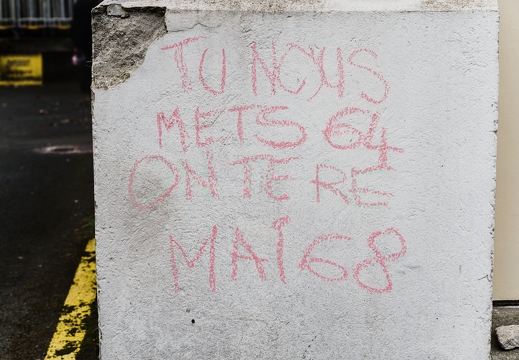 TU NOUS
METS 64
ON TE RE
MAÏ 68